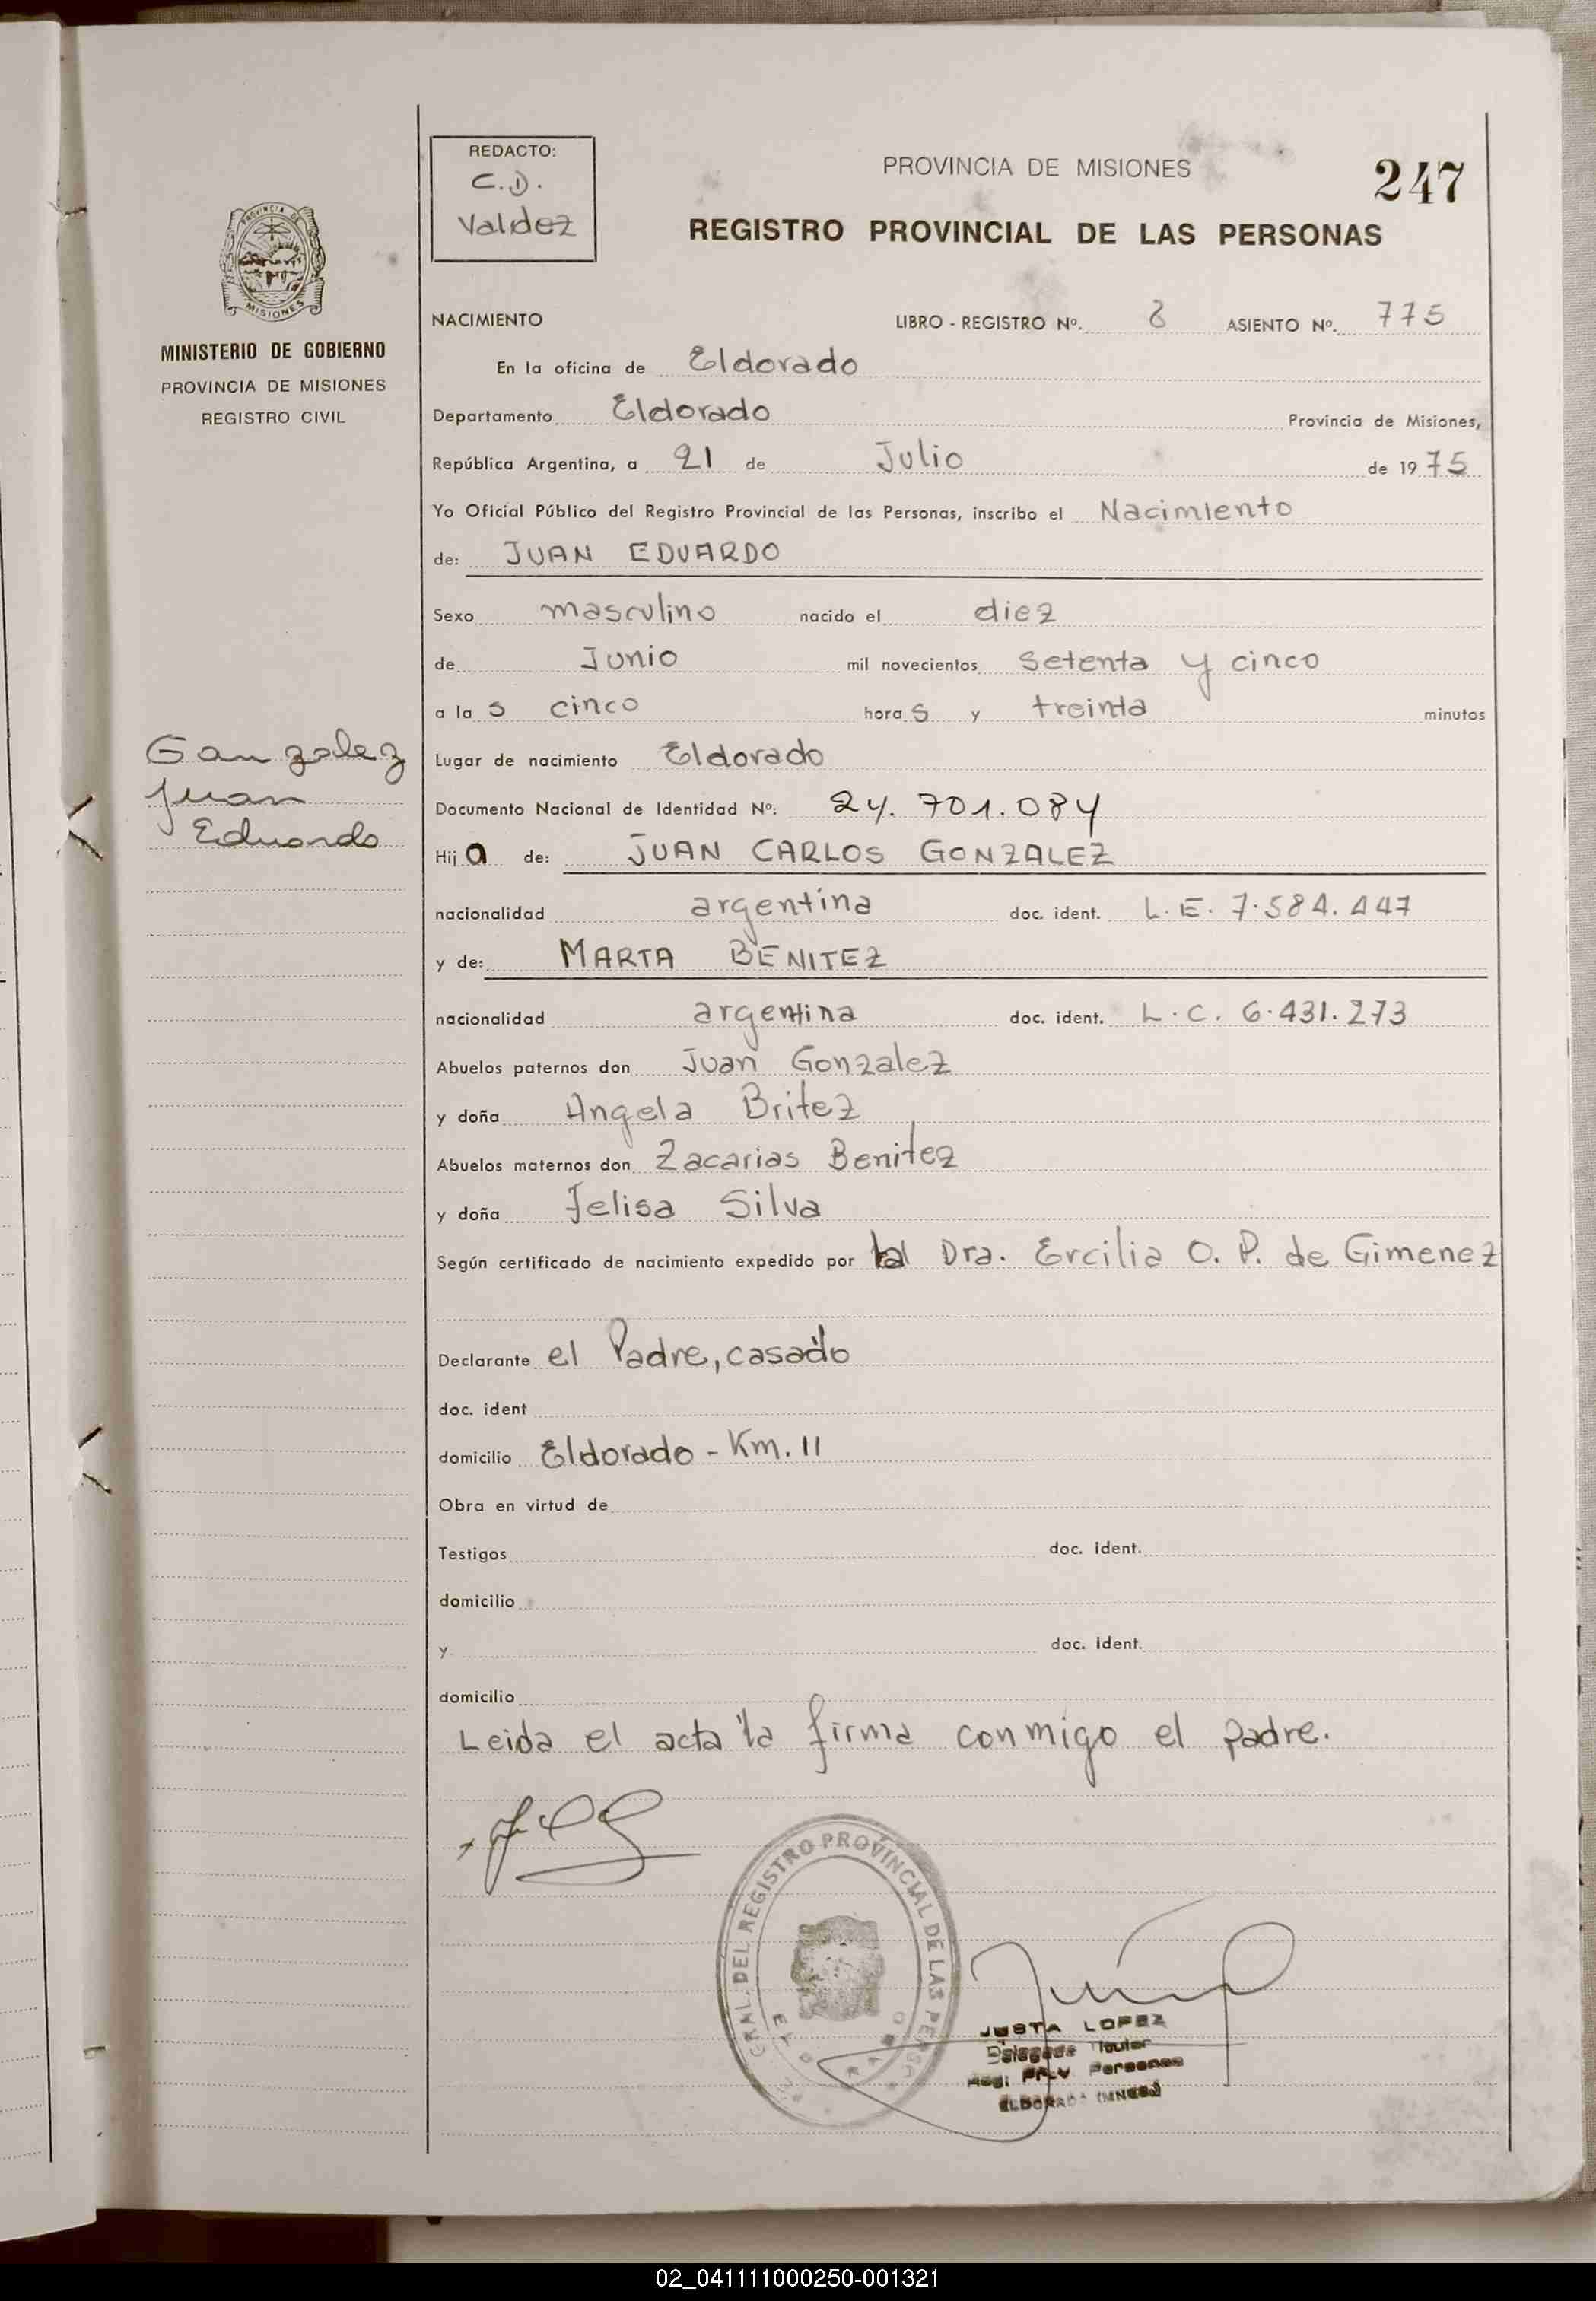 REDACTO:
C.D.
Valdez
PROVINCIA DE MISIONES
247
REGISTRO PROVINCIAL DE LAS PERSONAS
MISIONES
MINISTERIO DE GOBIERNO
PROVINCIA DE MISIONES
REGISTRO CIVIL
NACIMIENTO LIBRO - REGISTRO Nº. 8 ASIENTO Nº. 775
En la oficina de Eldorado
Departamento Eldorado Provincia de Misiones,
República Argentina, a 21 de Julio de 1975
Yo Oficial Público del Registro Provincial de las Personas, inscribo el Nacimiento
de: JUAN EDUARDO
Sexo masculino nacido el diez
de Junio mil novecientos setenta y cinco
a la s cinco hora s y treinta minutos
Gonzalez
Juan
Eduardo
Lugar de nacimiento Eldorado
Documento Nacional de Identidad Nº: 24.701.084
Hij o de: JUAN CARLOS GONZALEZ
nacionalidad argentina doc. ident. L.E. 7.584.447
y de: MARTA BENITEZ
nacionalidad argentina doc. ident. L.C. 6.431.273
Abuelos paternos don Juan Gonzalez
y doña Angela Britez
Abuelos maternos don Zacarias Benitez
y doña Felisa Silva
Según certificado de nacimiento expedido por la Dra. Ercilia O. P. de Gimenez
Declarante el Padre, casado
doc. ident
domicilio Eldorado - Km. 11
Obra en virtud de
Testigos doc. ident.
domicilio
y doc. ident.
domicilio
Leida el acta la firma conmigo el padre.
GRAL. DEL REGISTRO PROVINCIAL DE LAS PERSO
JUSTA LOPEZ
Delegada Titular
Regi Prov Personas
ELDORADO (MNES)
02_041111000250-001321